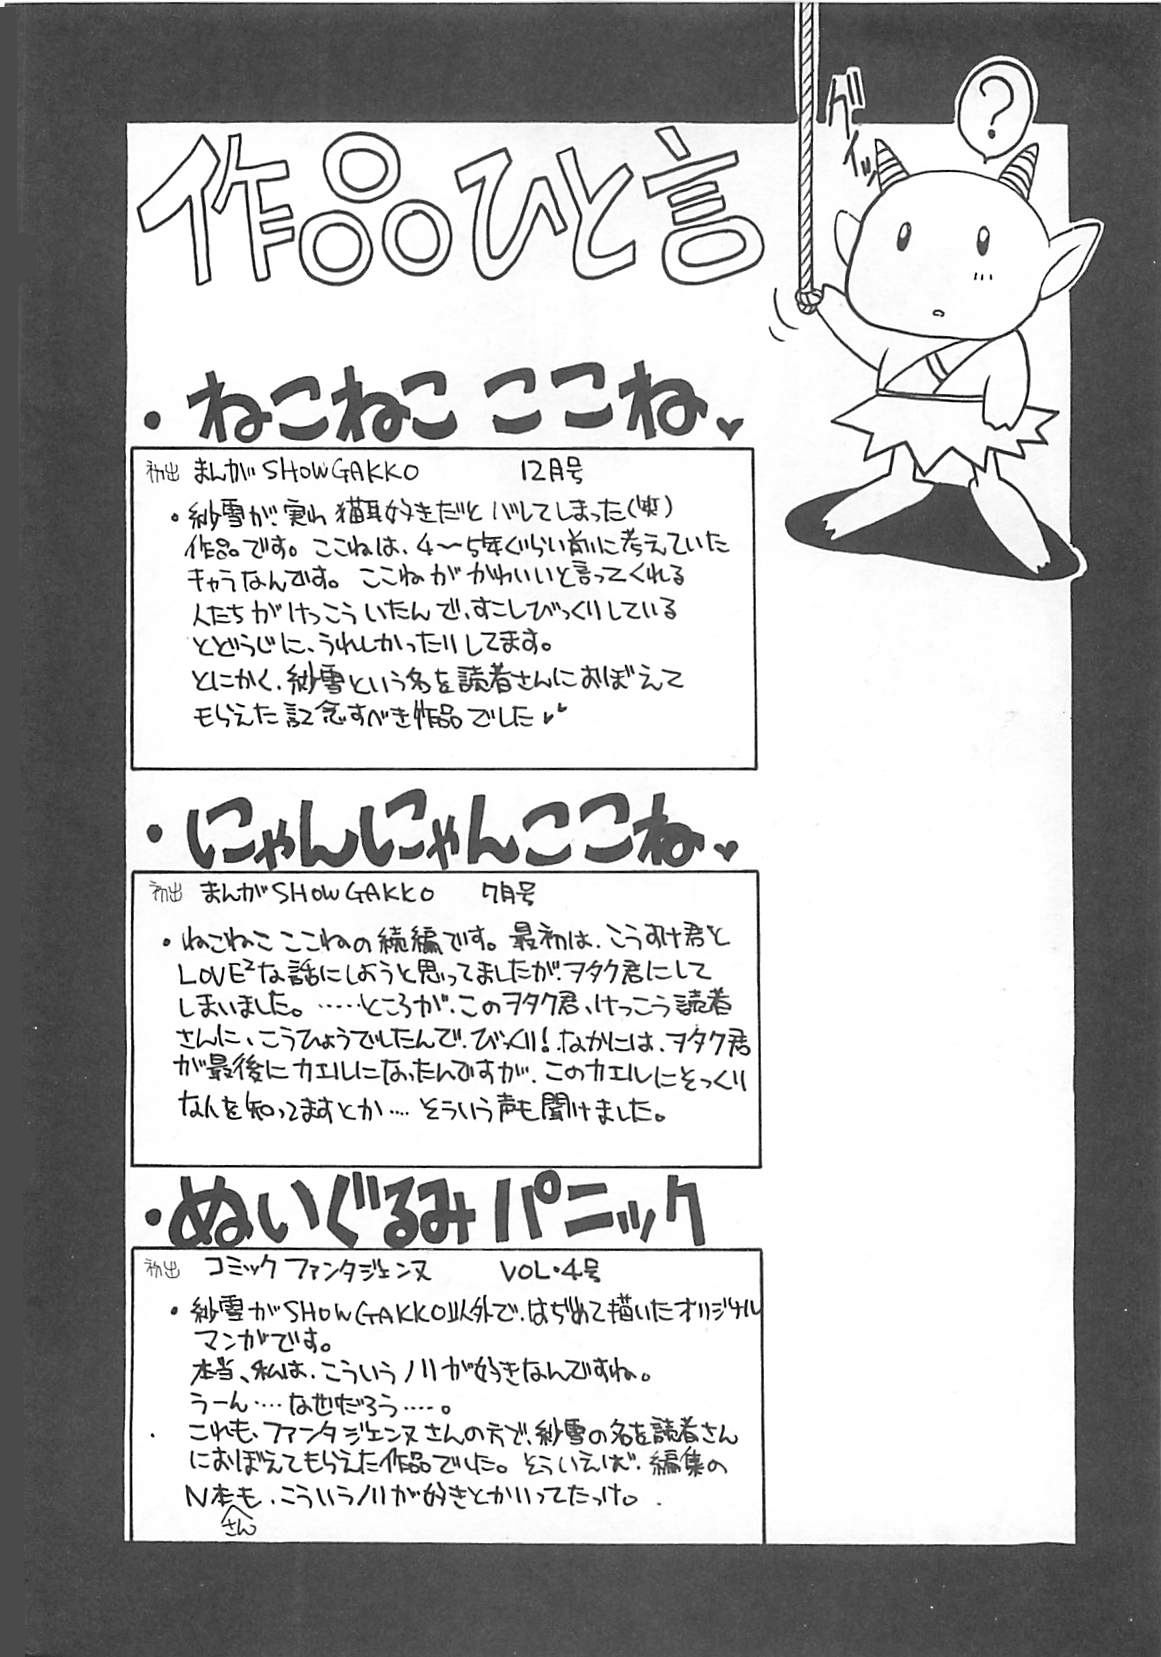 作品ひと言
?
グイッ
・ねこねこ ここね♥
初出 まんがSHOWGAKKO 12月号
・紗雪が、実は猫耳好きだとバレてしまった(笑)
作品です。ここねは、4〜5年ぐらい前に考えていた
キャラなんです。ここねがかわいいと言ってくれる
人たちがけっこういたんで、すこしびっくりしている
とどうじに、うれしかったりしてます。
とにかく、紗雪という名を読者さんにおぼえて
もらえた記念すべき作品でした♥
・にゃんにゃんここね♥
初出 まんがSHOWGAKKO 7月号
・ねこねこ ここねの続編です。最初は、こうすけ君と
LOVE²な話にしようと思ってましたが、ヲタク君にして
しまいました。……ところが、このヲタク君、けっこう読者
さんに、こうひょうでしたんで、びっくり!なかには、ヲタク君
が最後にカエルになったんですが、このカエルにそっくり
な人を知ってますとか…. そういう声も聞けました。
・ぬいぐるみパニック
初出 コミックファンタジェンヌ VOL・4号
・紗雪がSHOWGAKKO以外で、はぢめて描いたオリジナル
マンガです。
本当、私は、こういうノリが好きなんですね。
うーん……なぜだろう……。
これも、ファンタジェンヌさんの方で、紗雪の名を読者さん
におぼえてもらえた作品でした。そういえば、編集の
N本さんも、こういうノリが好きとかいってたっけ。